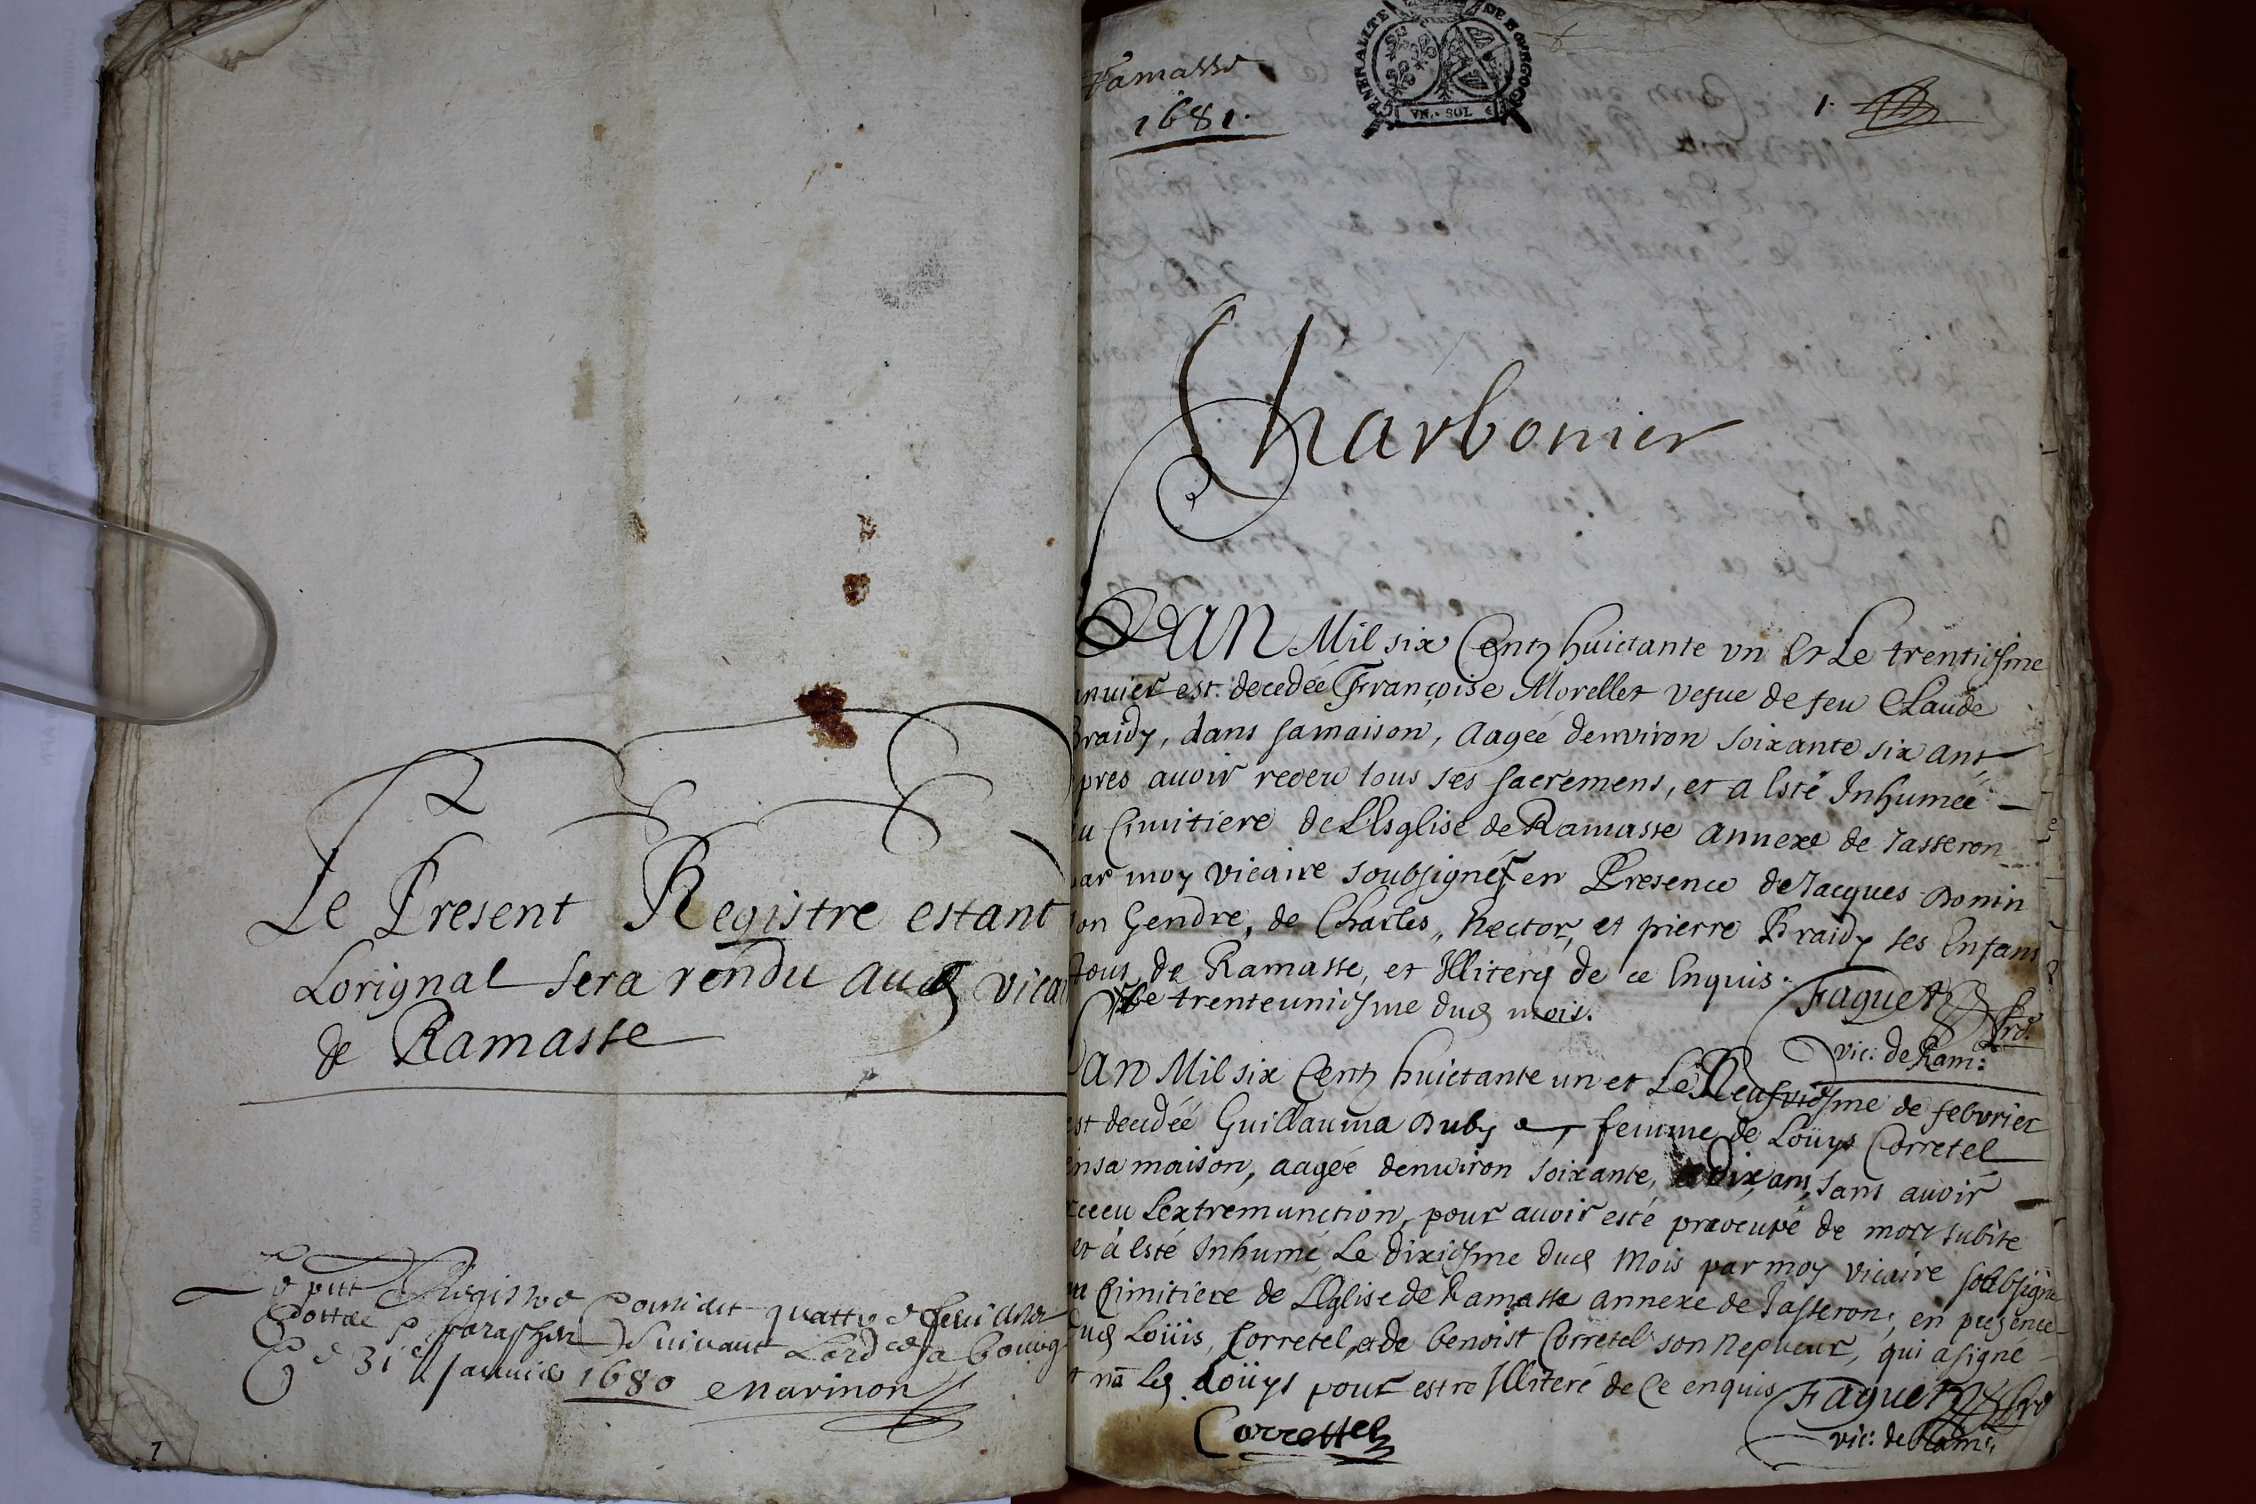 Le Present Registre estant
Lorignal sera rendu aud vicai
de Ramasse
Le pnt Registre Contient quattre feuillets
Cottee & paraphez Suivant Lordce a bourg
Ce 31e Januie 1680 Marinon
7
Ramasse
1681.
GENERALITE DE BOVRGOG
VN. SOL
1.
Charbonier
LAN Mil six Centz huictante vn et Le trentiesme
anuier est decedée Françoise Morellet vefue de feu Claude
Braidy, dans sa maison, aagée denviron soixante six ans
pres auoir receu tous ses sacremens, et a esté Inhumée
au Cimitiere de LEsglise de Ramasse annexe de Jasseron
par moy vicaire soubsigné en Presence de Jacques Bonin
son Gendre, de Charles, hector, et pierre Braidy ses Enfans
tous de Ramasse, et Illiterez de ce Enquis.
Le trenteuniesme dud mois.
Faguet
vic: de Ram:
LAN Mil six Centz huictante un et Le Neufviesme de febvrier
est decedée Guillauma Duby femme de Loüys Corretel
en sa maison, aagée denviron soixante, dix, ans, sans auoir
receu Lextremunction, pour auoir esté preocupé de mort subite
et à esté Inhumé Le dixiesme dud Mois par moy vicaire soubsigne
au Cimitiere de LEglise de Ramasse annexe de Jasseron, en presence
dud Loüis, Corretel, et de benoist Corretel son Nepueur, qui a signé
et nō Led Loüys pour estre Illiteré de Ce enquis
Faguet
Correttel
vic: de Ram: